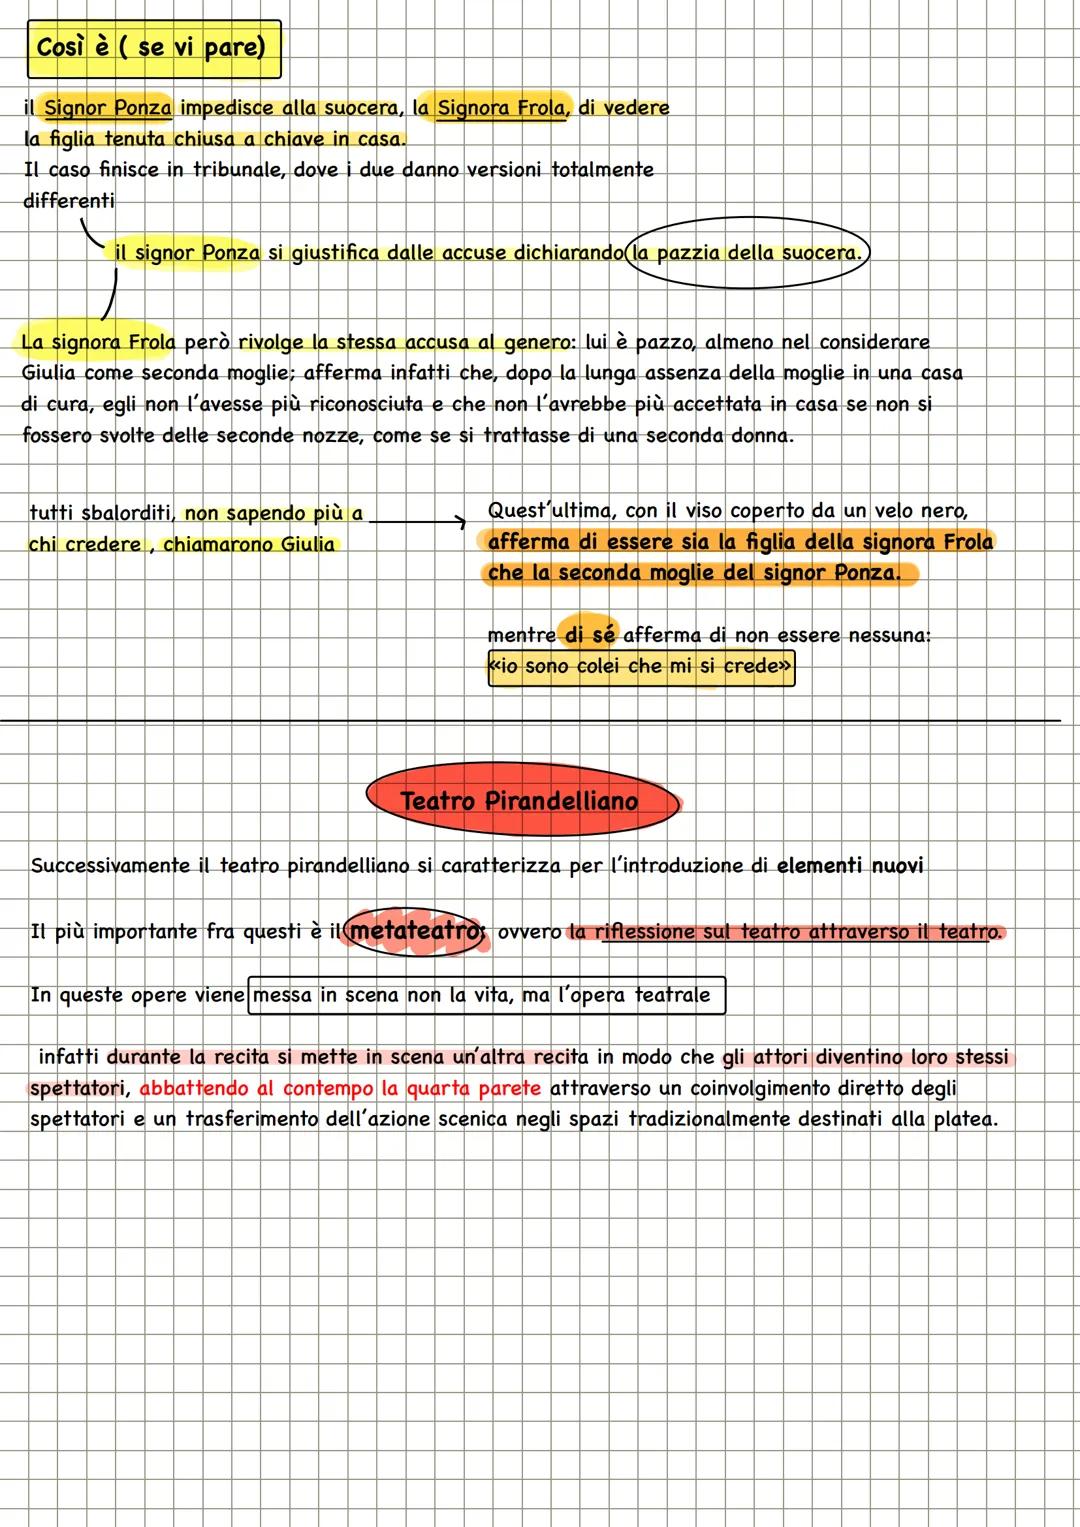 Così è ( se vi pare)
il Signor Ponza impedisce alla suocera, la Signora Frola, di vedere
la figlia tenuta chiusa a chiave in casa.
Il caso finisce in tribunale, dove i due danno versioni totalmente
differenti
il signor Ponza si giustifica dalle accuse dichiarando la pazzia della suocera.
La signora Frola però rivolge la stessa accusa al genero: lui è pazzo, almeno nel considerare
Giulia come seconda moglie; afferma infatti che, dopo la lunga assenza della moglie in una casa
di cura, egli non l'avesse più riconosciuta e che non l'avrebbe più accettata in casa se non si
fossero svolte delle seconde nozze, come se si trattasse di una seconda donna.
tutti sbalorditi, non sapendo più a
chi credere , chiamarono Giulia
Quest'ultima, con il viso coperto da un velo nero,
afferma di essere sia la figlia della signora Frola
che la seconda moglie del signor Ponza.
mentre di sé afferma di non essere nessuna:
«io sono colei che mi si crede»
Teatro Pirandelliano
Successivamente il teatro pirandelliano si caratterizza per l'introduzione di elementi nuovi
Il più importante fra questi è il metateatro; ovvero la riflessione sul teatro attraverso il teatro.
In queste opere viene messa in scena non la vita, ma l'opera teatrale
infatti durante la recita si mette in scena un'altra recita in modo che gli attori diventino loro stessi
spettatori, abbattendo al contempo la quarta parete attraverso un coinvolgimento diretto degli
spettatori e un trasferimento dell'azione scenica negli spazi tradizionalmente destinati alla platea.